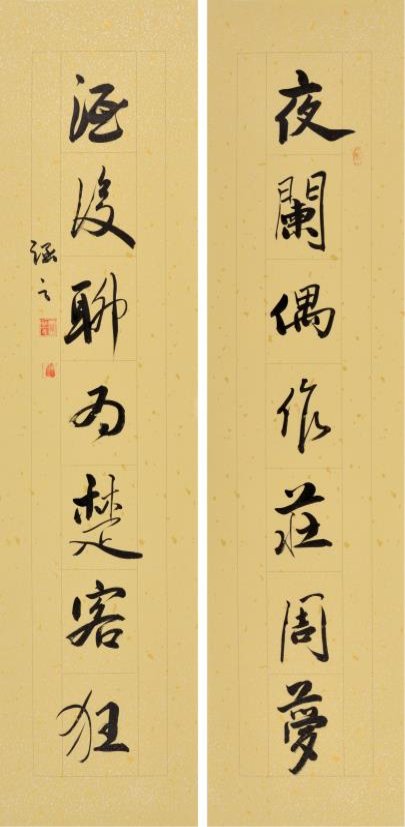 夜闌偶作莊周夢
酒後聊為楚客狂